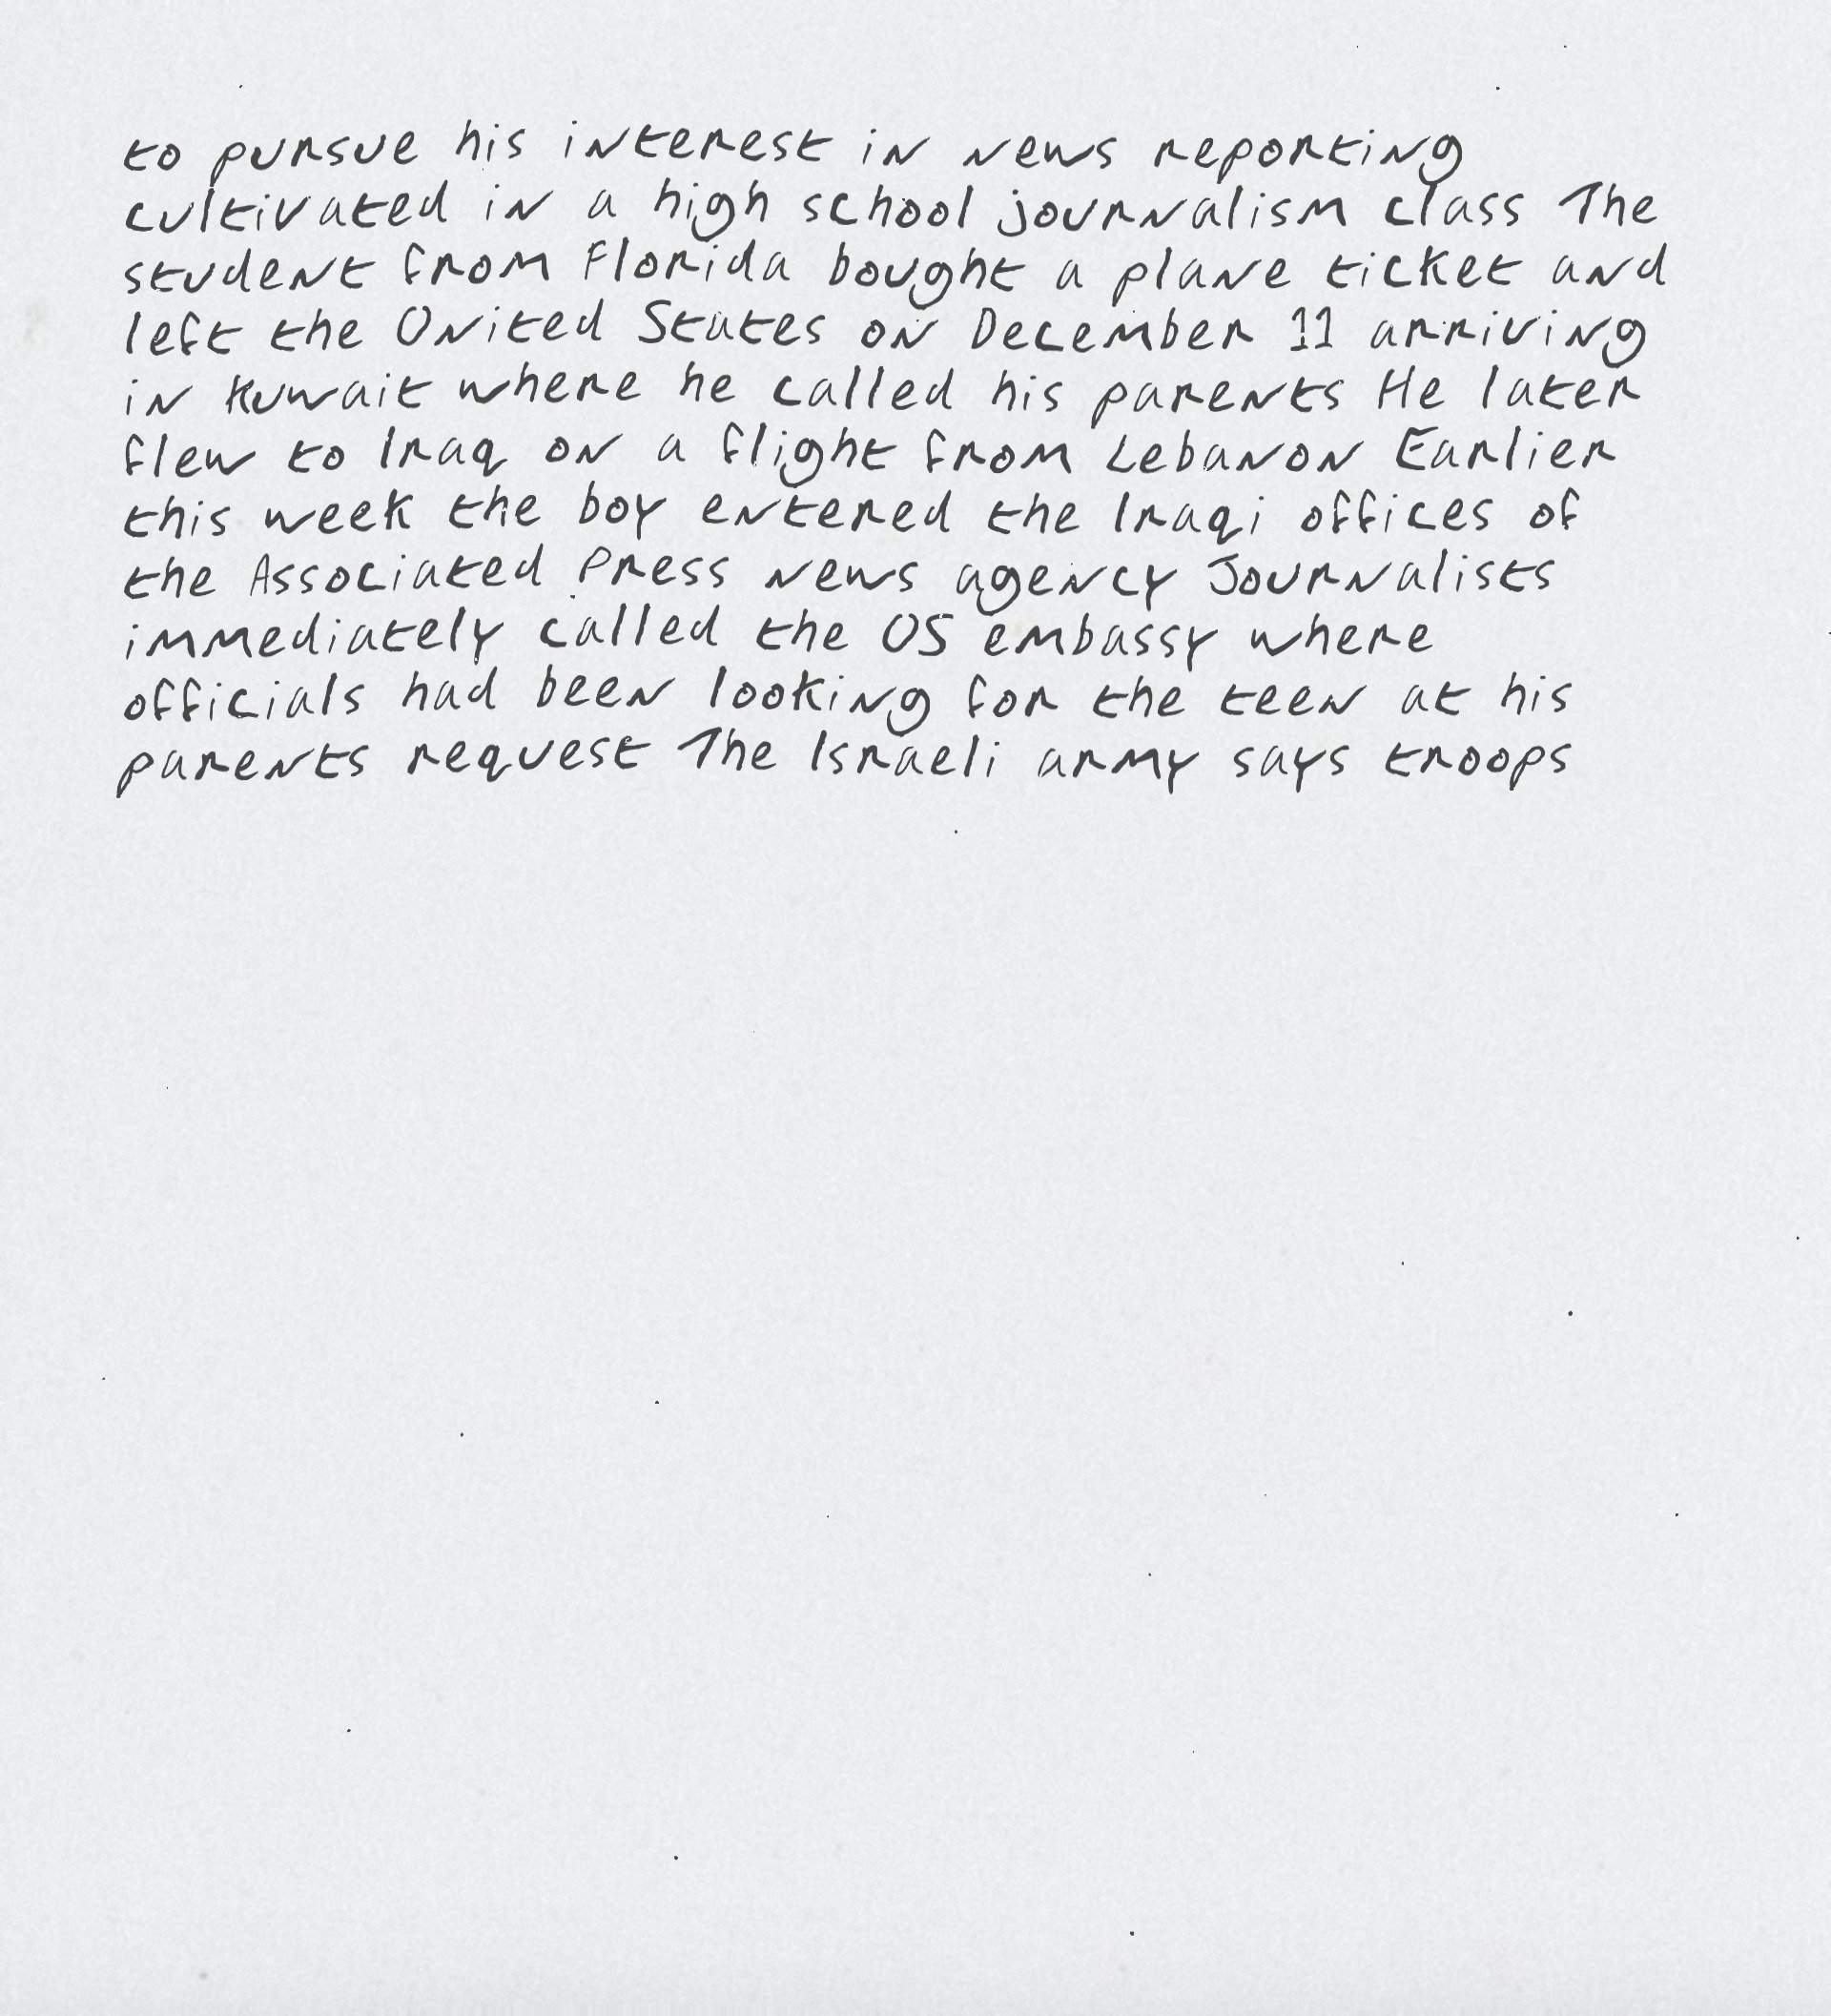 to pursue his interest in news reporting
cultivated in a high school journalism class The
student from Florida bought a plane ticket and
left the United States on December 11 arriving
in Kuwait where he called his parents He later
flew to Iraq on a flight from Lebanon Earlier
this week the boy entered the Iraqi offices of
the Associated Press news agency Journalists
immediately called the US embassy where
officials had been looking for the teen at his
parents request The Israeli army says troops